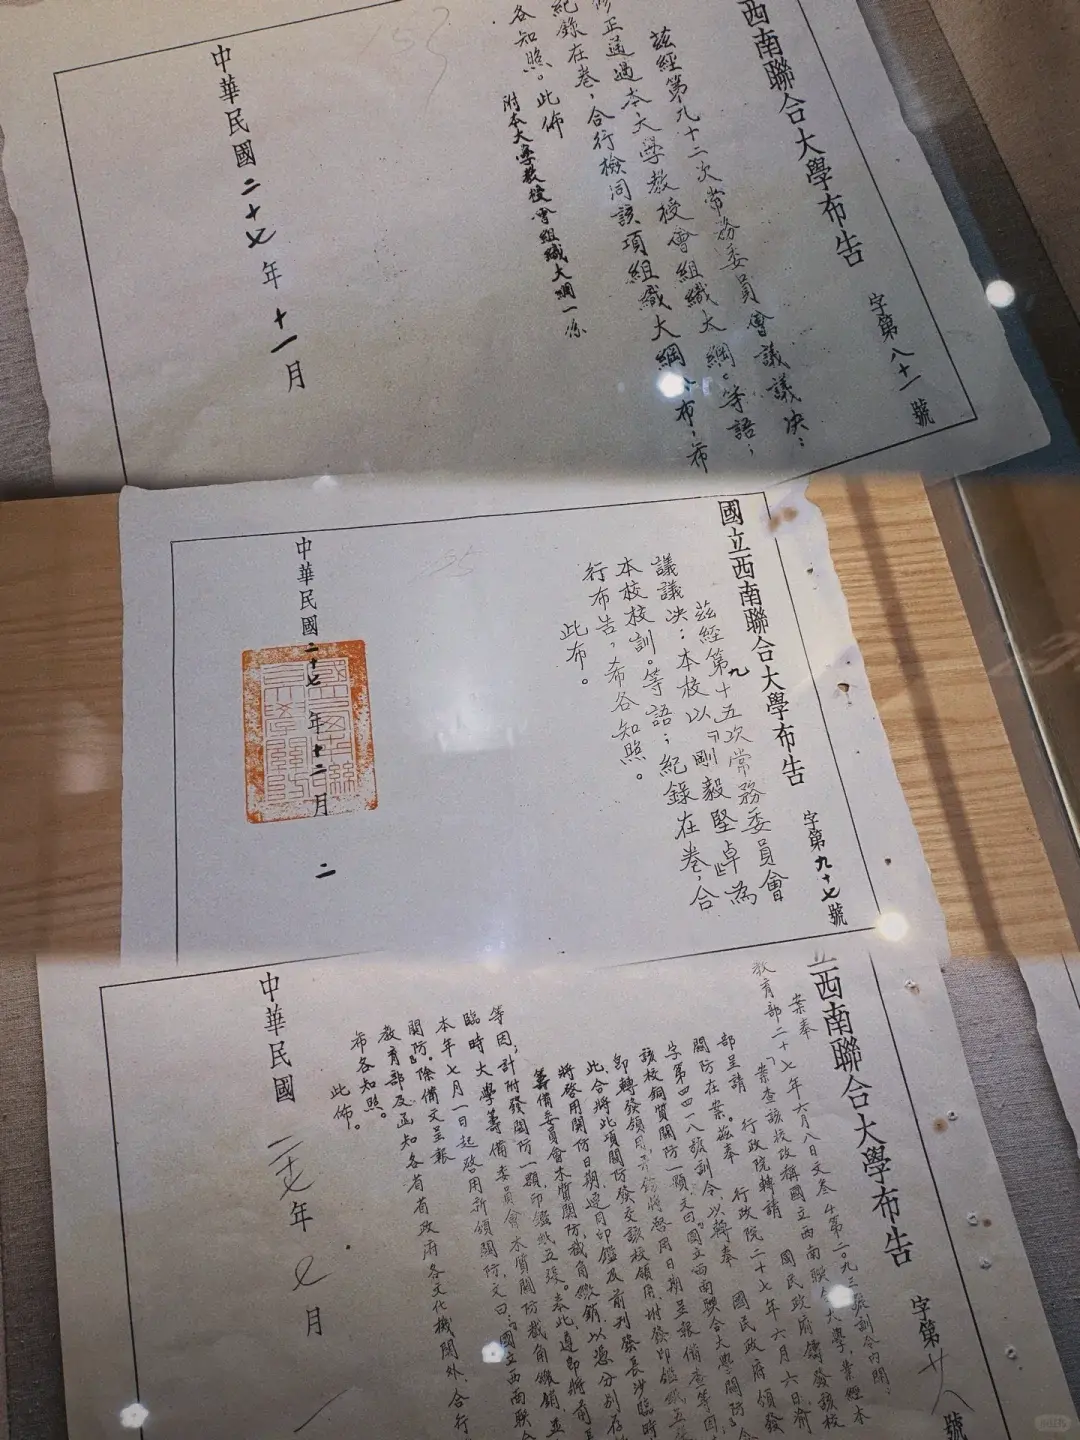 西南聯合大學布告
字第八十一號
茲經第九十二次常務委員會議議决：
修正通過本大學教授會組織大綱。等語；
紀錄在卷，合行檢同該項組織大綱公布，希
各知照。此佈
附本大學教授會組織大綱一份
中華民國二十七年十一月
國立西南聯合大學布告
字第九十七號
茲經第九十五次常務委員會
議議决：本校以『剛毅堅卓』為
本校校訓。等語；紀錄在卷，合
行布告，希各知照。
此布。
中華民國二十七年十二月二
立西南聯合大學布告
字第廿八號
案奉
教育部二十七年六月八日文叁4第二〇九三號訓令內開：
「案查該校改稱國立西南聯合大學，業經本
部呈請 行政院轉請 國民政府鑄發該校
關防在案。茲奉 行政院二十七年六月六日渝
字第四四一八號訓令，以轉奉 國民政府頒發
該校銅質關防一顆，文曰『國立西南聯合大學關防』令
即轉發領用 將啓用日期呈報備查等因，
此，合將此項關防發交該校領用，附發印鑑紙五
將啓用關防日期連同印鑑及前刊發長沙臨時
籌備委員會木質關防，截角繳銷，以憑分別存
等因；計附發關防一顆，印鑑紙五張。奉此，遵即將前
臨時大學籌備委員會木質關防截角繳銷，並
本年七月一日起啓用新頒關防，文曰：『國立西南聯合
關防』。除備文呈報
教育部及函知各省市政府各文化機關外，合行
希各知照。
此佈。
中華民國二十七年七月一